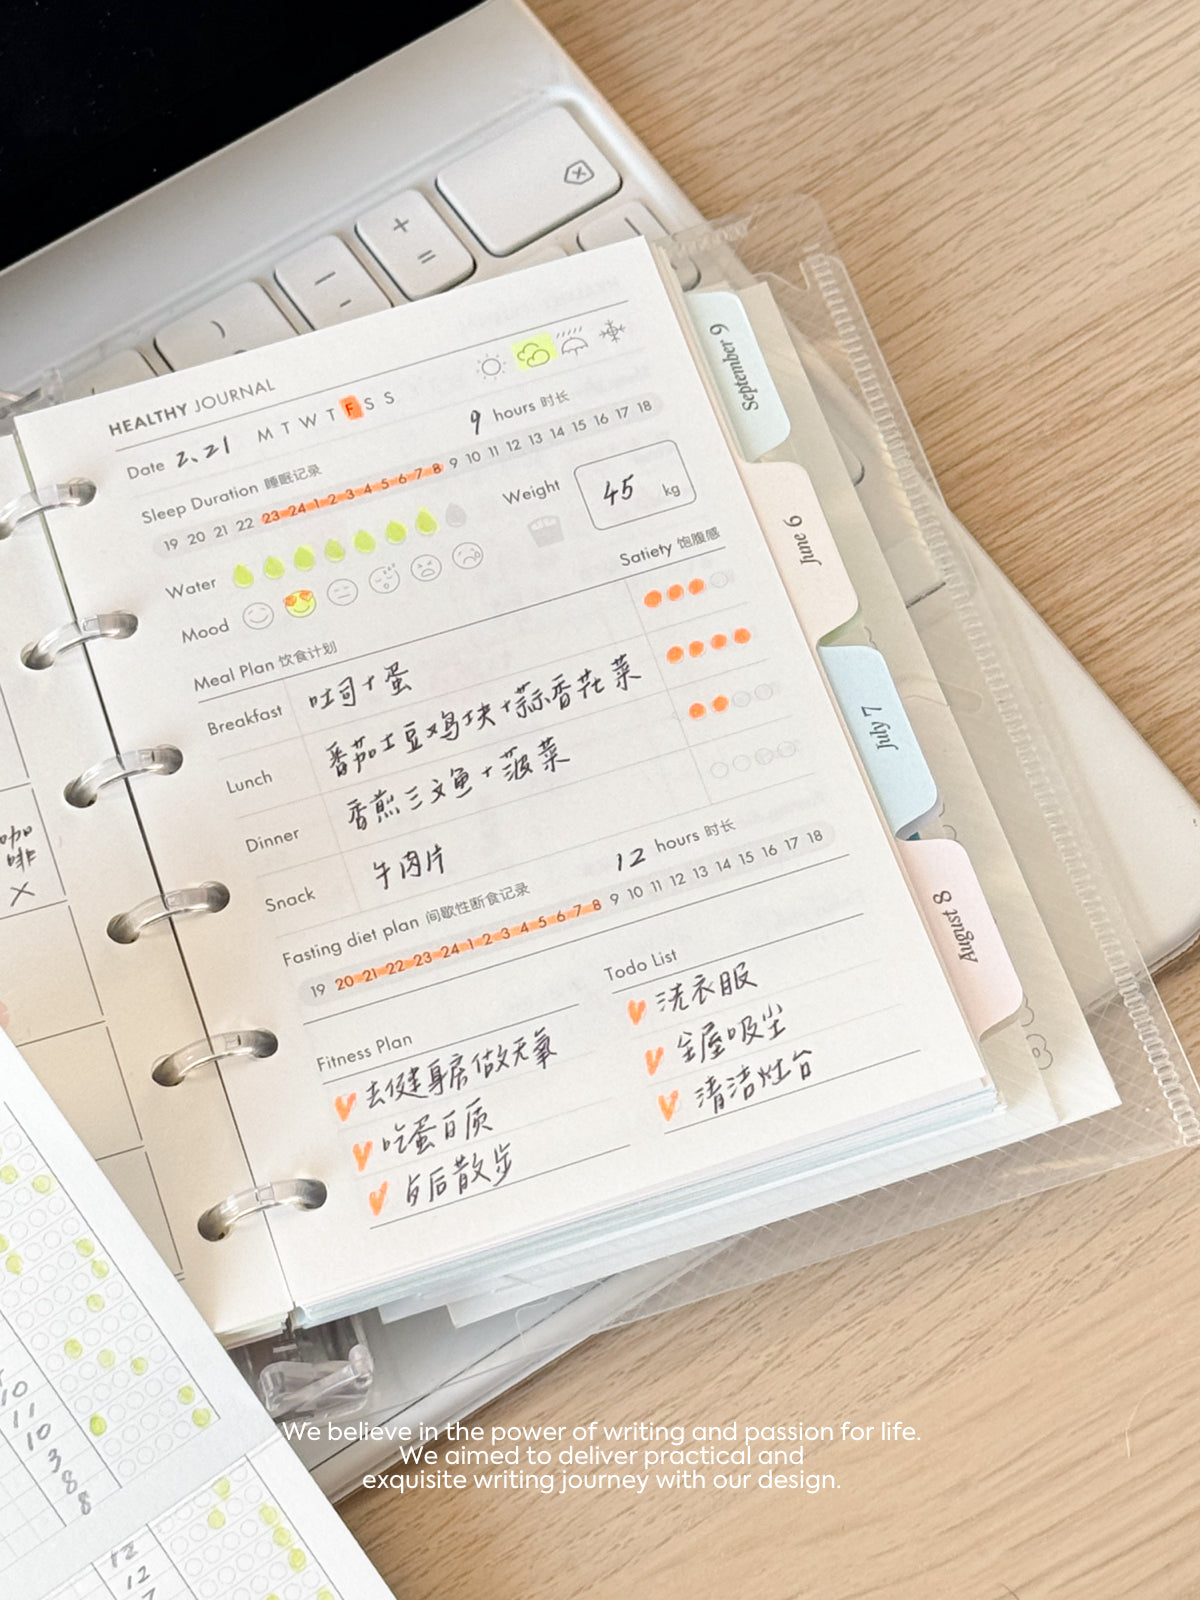 HEALTHY JOURNAL
Date 2.21 M T W T F S S
Sleep Duration 睡眠记录 9 hours 时长
19 20 21 22 23 24 1 2 3 4 5 6 7 8 9 10 11 12 13 14 15 16 17 18
Water
Weight 45 kg
Mood
Meal Plan 饮食计划 Satiety 饱腹感
Breakfast 吐司+蛋
Lunch 番茄土豆鸡块+蒜香花菜
Dinner 香煎三文鱼+菠菜
Snack 牛肉片
Fasting diet plan 间歇性断食记录 12 hours 时长
19 20 21 22 23 24 1 2 3 4 5 6 7 8 9 10 11 12 13 14 15 16 17 18
Fitness Plan
去健身房做无氧
吃蛋白质
后散步
Todo List
洗衣服
全屋吸尘
清洁灶台
September 9
June 6
July 7
August 8
+
=
咖
啡
×
10
11
10
3
8
8
12
12
We believe in the power of writing and passion for life.
We aimed to deliver practical and
exquisite writing journey with our design.